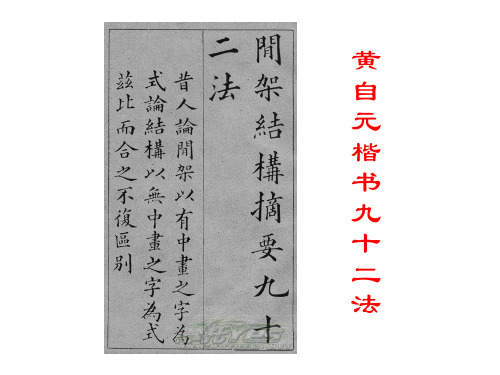 黄自元楷书九十二法
閒架結構摘要九十
二法
昔人論閒架以有中畫之字為
式論結構以無中畫之字為式
茲比而合之不復區別